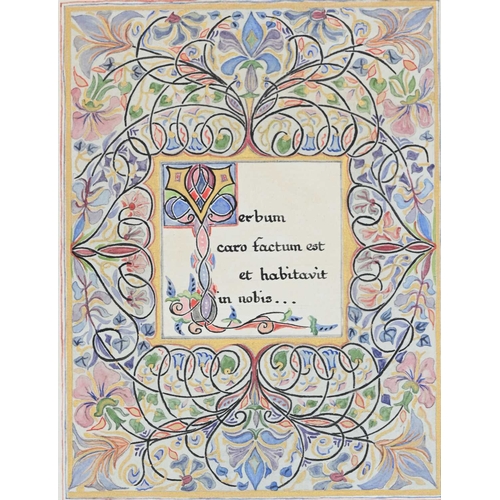 Verbum
caro factum est
et habitavit
in nobis...